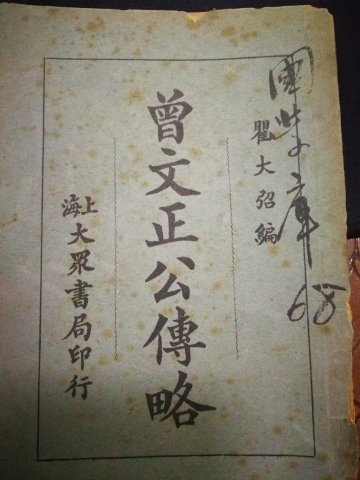 國学文庫
68
瞿大弨編
曾文正公傳略
上海大眾書局印行